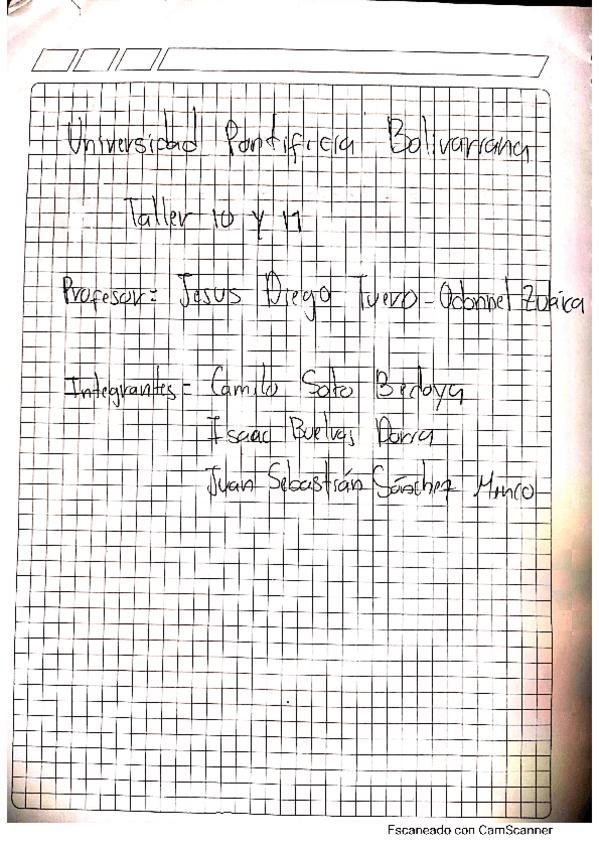 Universidad Pontificia Bolivariana
Taller 10 y 11
Profesor: Jesus Diego Tuero - Odonnel Zubica
Integrantes = Camilo Soto Bedoya
Isaac Buelvas Parra
Juan Sebastián Sánchez
Escaneado con CamScanner